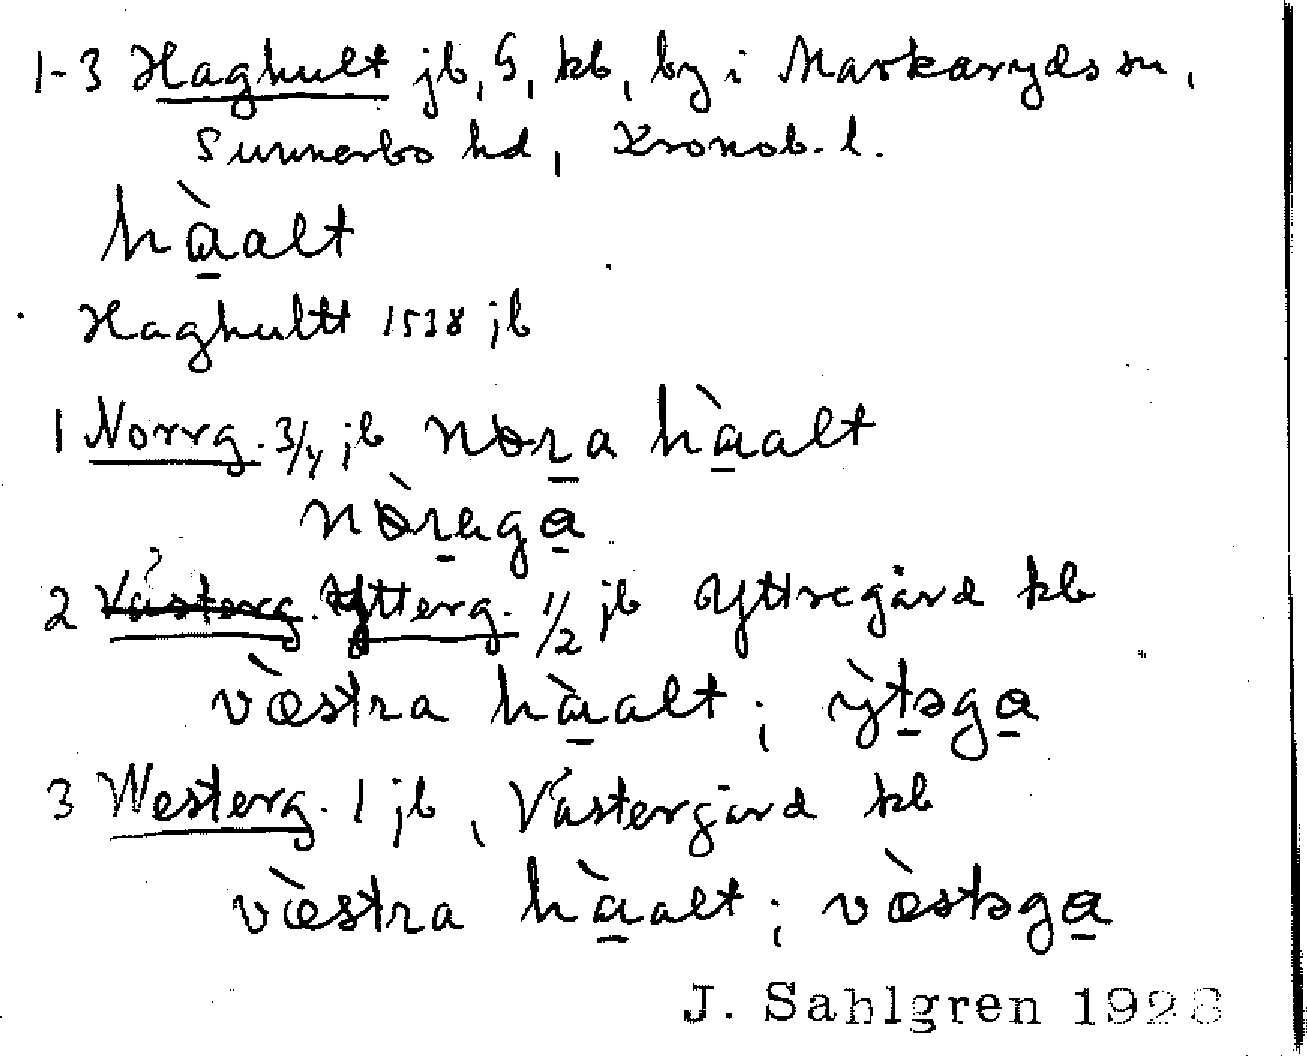 1-3 Haghult jb, G, kb, by i Markaryds sn,
Sunnerbo hd, Kronob. l.
hàalt
Haghultt 1538 jb
1 Norrg. 3/4 jb nora hàalt
nòraga
2 Västerg. Ytterg. 1/2 jb Yttregård kb
væ̀stra hàalt; ỳtəga
3 Westerg. 1 jb, Västergård kb
væ̀stra hàalt; væ̀stəga
J. Sahlgren 1928